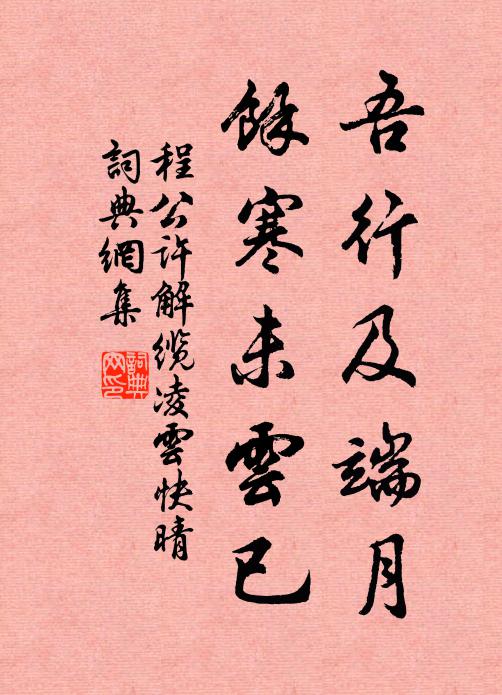 吾行及端月
餘寒未雲已
程公許解纜凌雲快晴
詞典網集
詞典网印